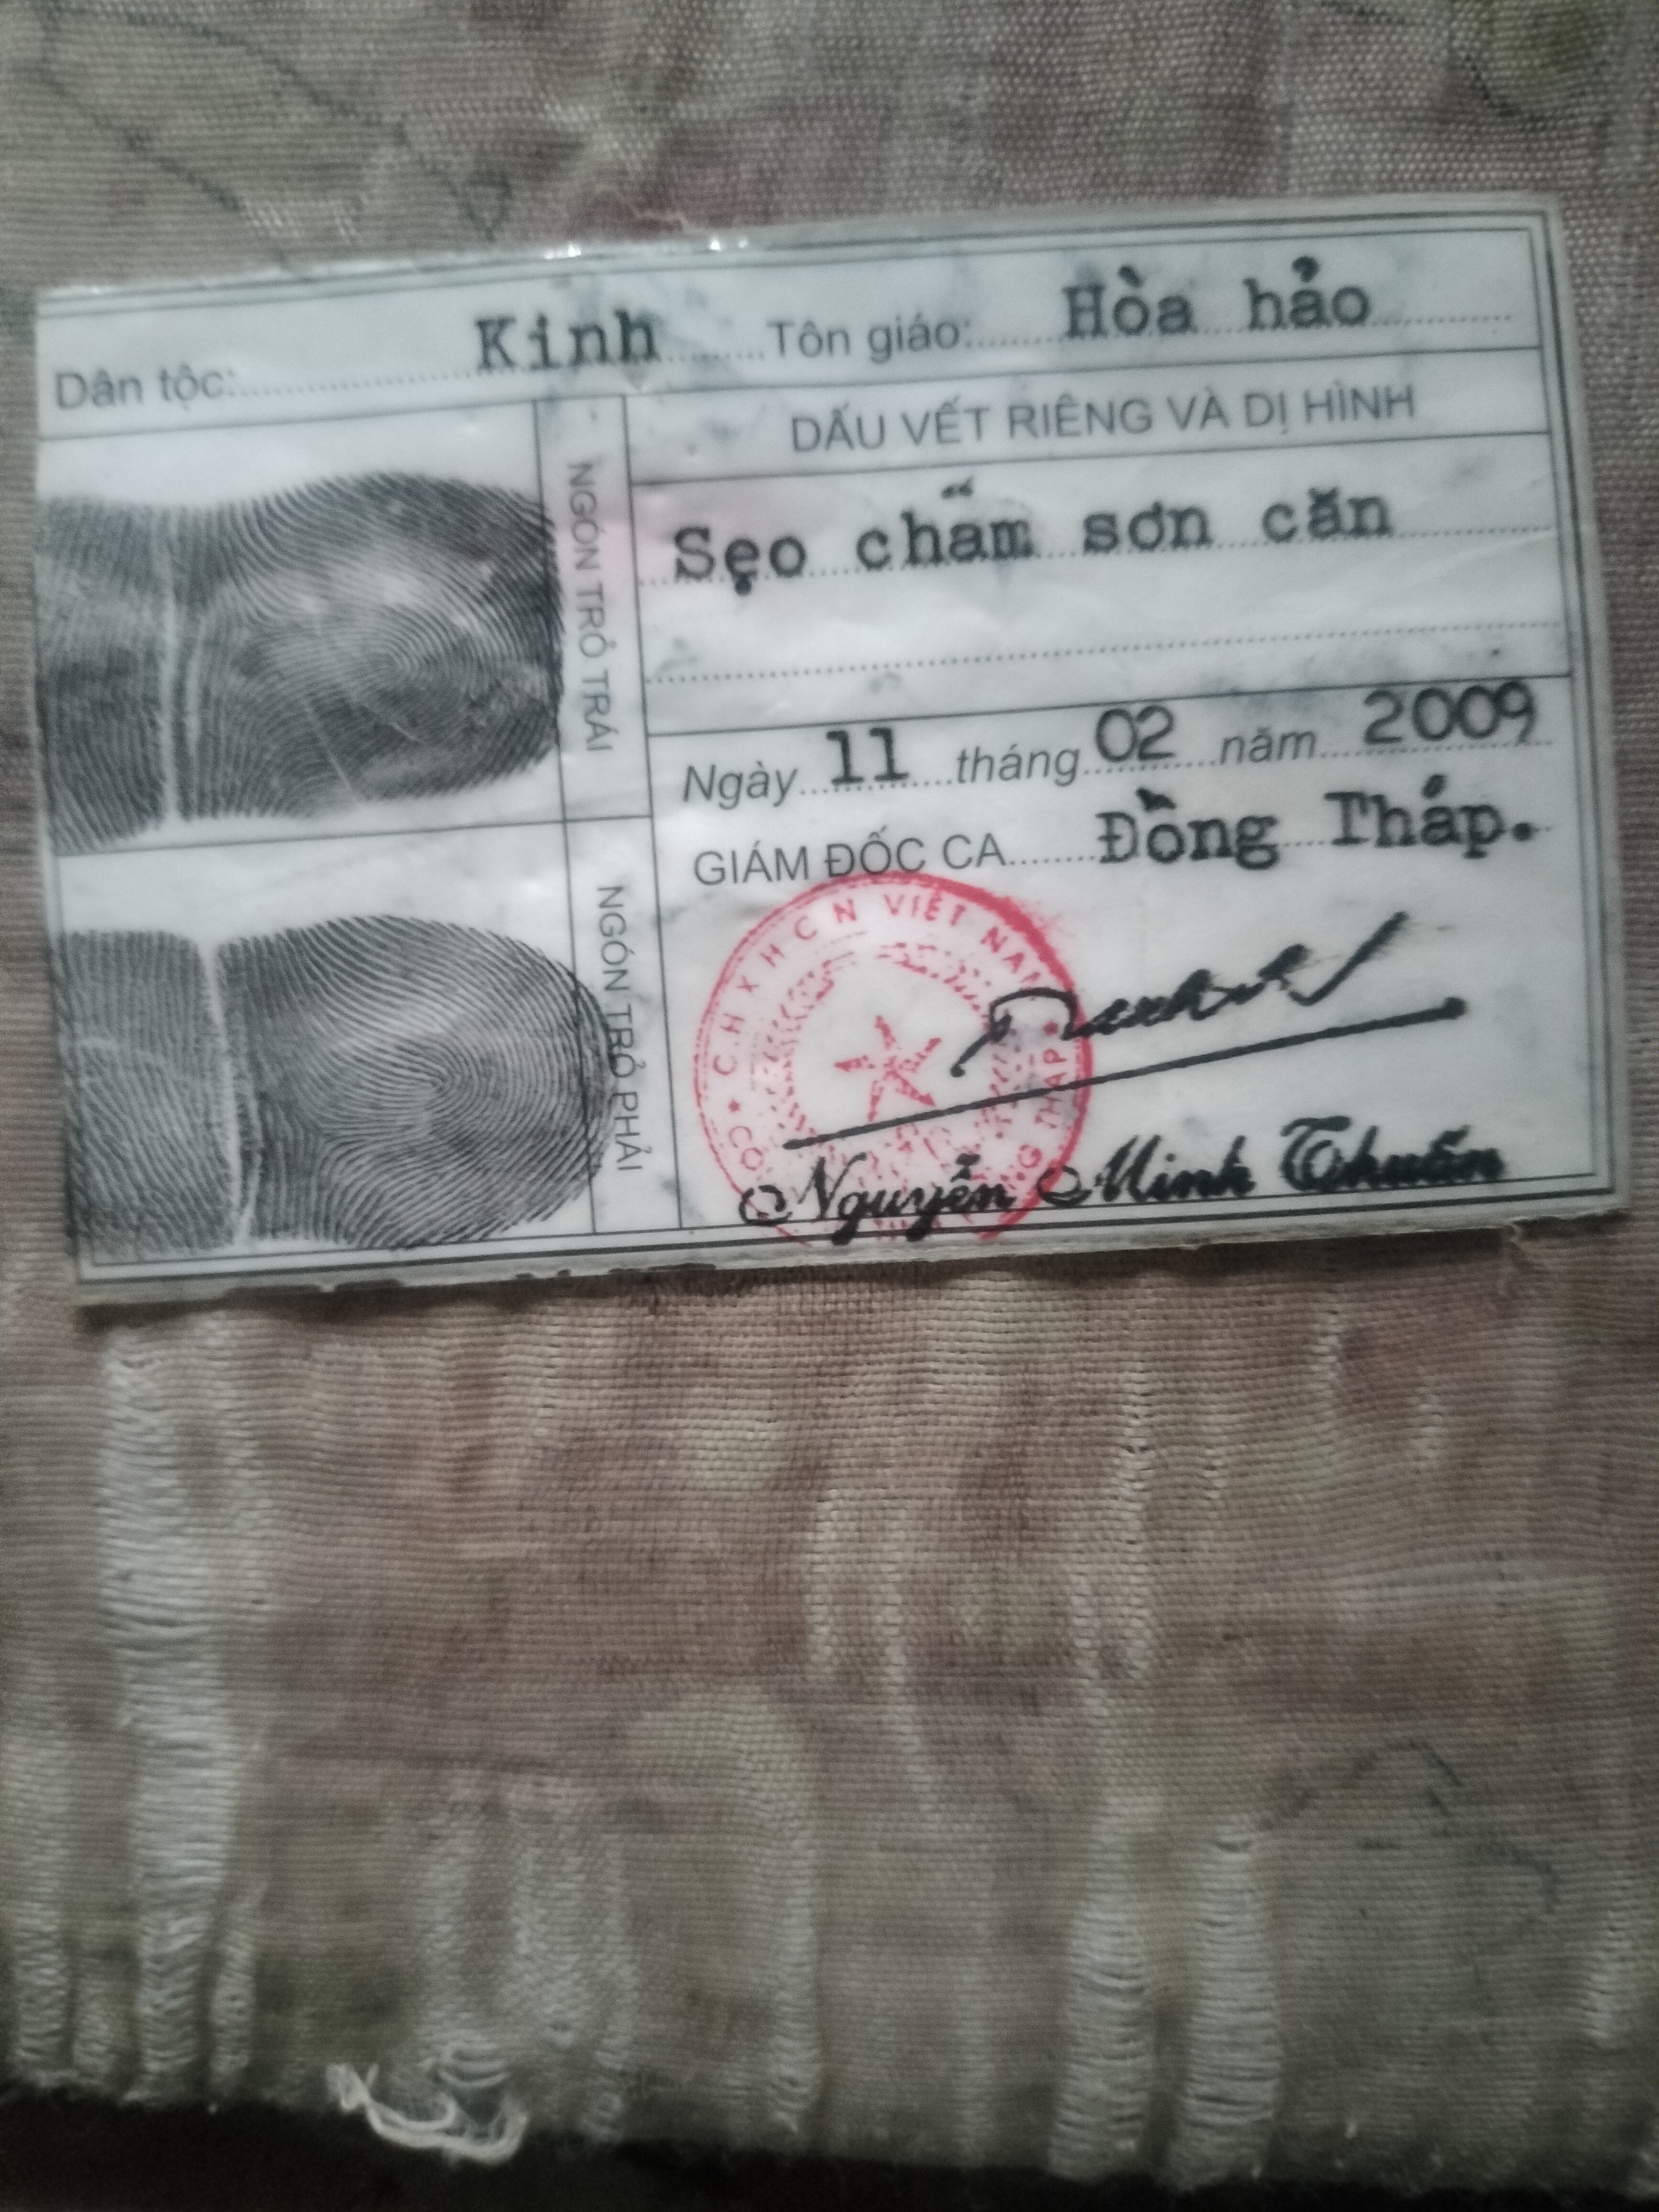 Dân tộc: Kinh Tôn giáo: Hòa hảo
NGÓN TRỎ TRÁI
NGÓN TRỎ PHẢI
DẤU VẾT RIÊNG VÀ DỊ HÌNH
Sẹo chấm sơn căn
Ngày 11 tháng 02 năm 2009
GIÁM ĐỐC CA Đồng Tháp.
C.H.X.H.C.N VIỆT NAM
THÁP
Nguyễn Minh Thuấn